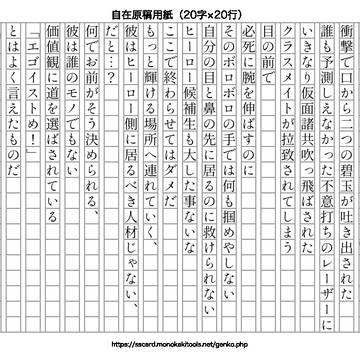 自在原稿用紙（20字×20行）
衝撃で口から二つの碧玉が吐き出された
誰も予測しえなかった不意打ちのレーザーに
いきなり仮面諸共吹っ飛ばされた
クラスメイトが拉致されてしまう
目の前で
必死に腕を伸ばすのに
そのボロボロの手では何も掴めやしない
自分の目と鼻の先に居るのに救けられない
ヒーロー候補生も大した事ないな
ここで終わらせてはダメだ
もっと輝ける場所へ連れていく、
彼はヒーロー側に居るべき人材じゃない、
だと…？
何でお前がそう決められる、
彼は誰のモノでもない
価値観に道を選ばされている
「エゴイストめ！」
とはよく言えたものだ
https://sscard.monokakitools.net/genko.php